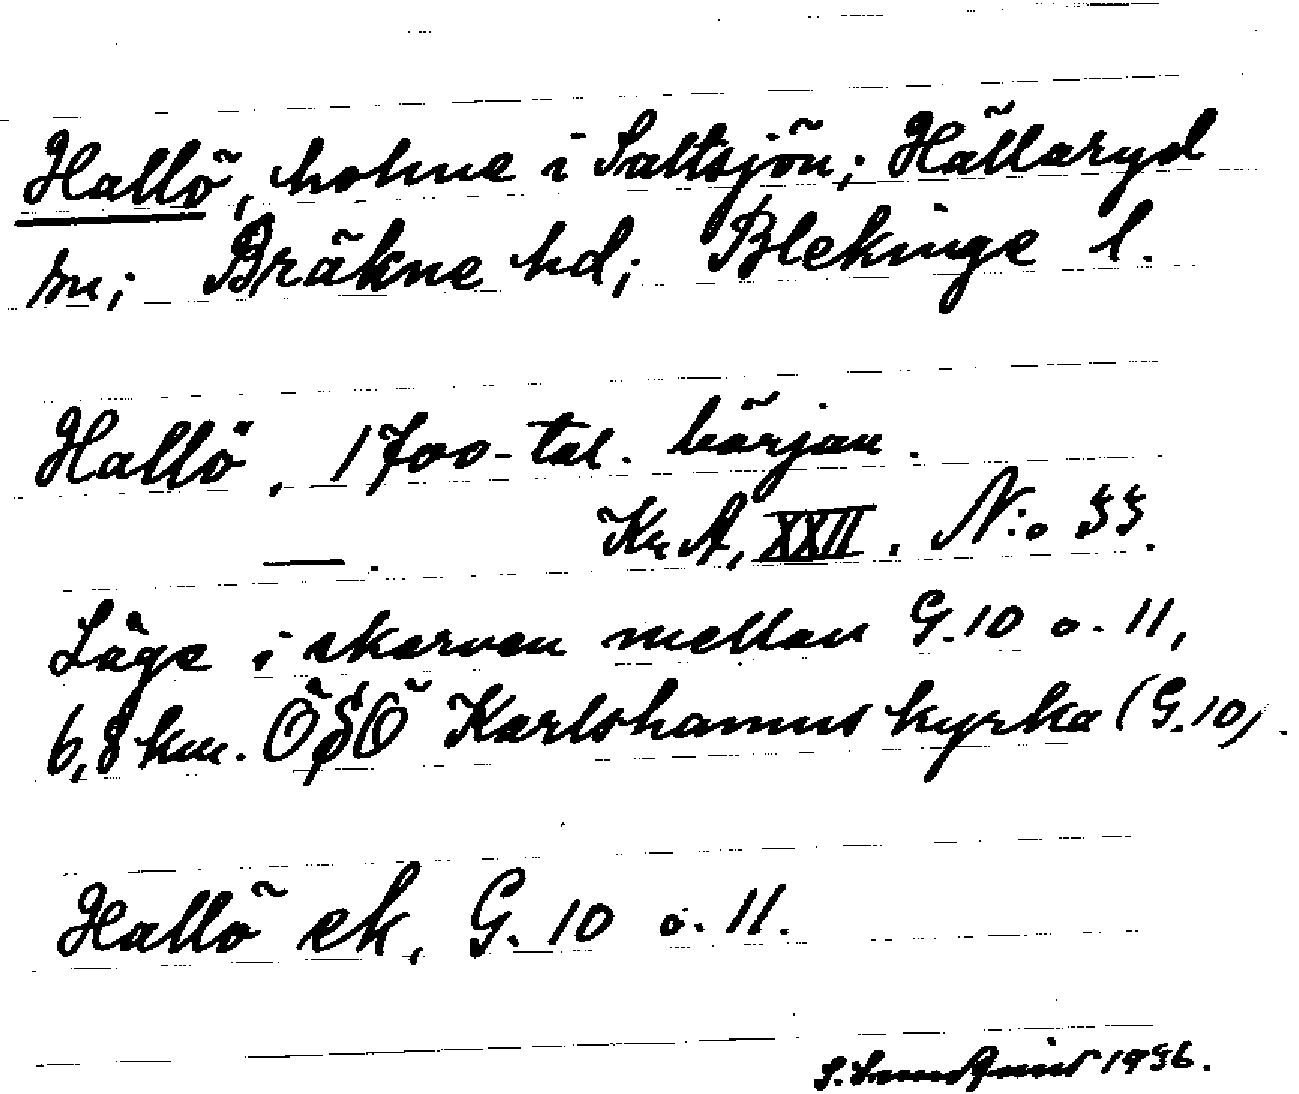 Hallö, holme i Saltsjön; Hällaryd
sn; Bräkne hd; Blekinge l.
Hallö, 1700-tal. början.
Kr A, XXII. N:o 33.
Läge i skarven mellan G.10 o. 11,
6,8 km. ÖSÖ Karlshamns kyrka (G.10).
Hallö ek, G. 10 o. 11.
S. Sundquist 1936.